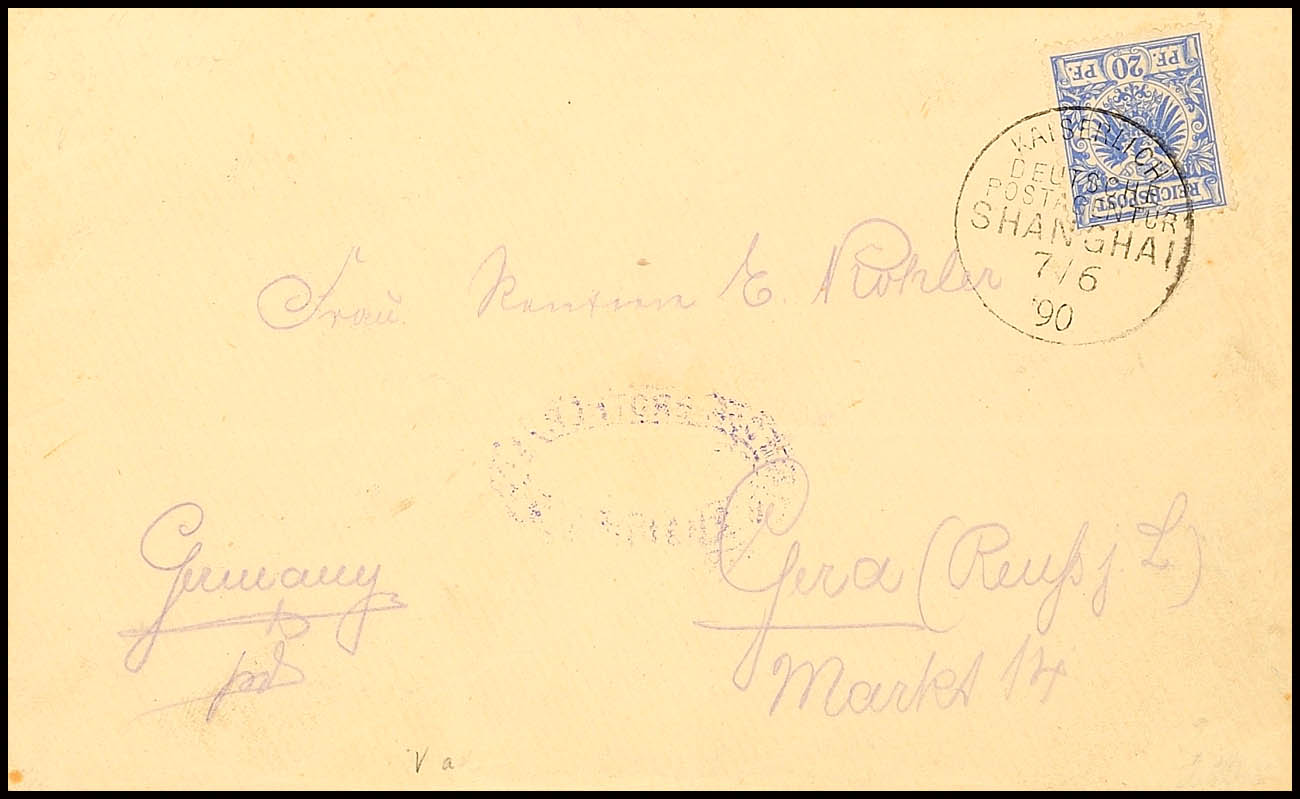 PF. 20 PF.
REICHSPOST
KAISERLICH
DEUTSCHE
POSTAGENTUR
SHANGHAI
7/6
'90
Frau Rentiere E. Köhler
Germany
Gera (Reuß j. L.)
Markt 14
V a